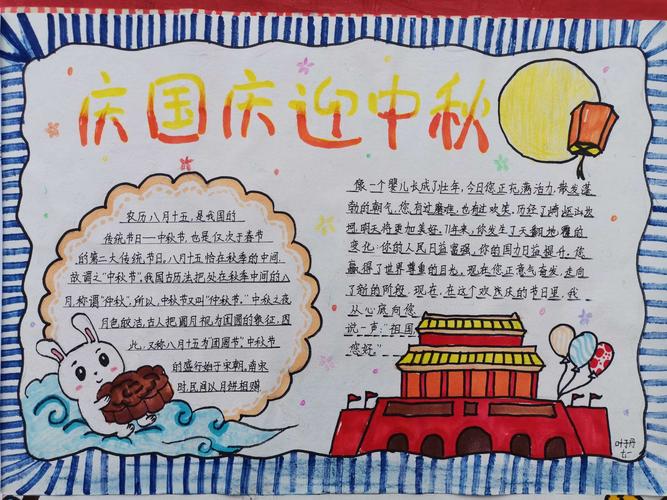 庆国庆迎中秋
农历八月十五,是我国的
传统节日——中秋节,也是仅次于春节
的第二大传统节日。八月十五恰在秋季的中间,
故谓之"中秋节"。我国古历法把处在秋季中间的八
月,称谓"仲秋",所以,中秋节又叫"仲秋节"。"中秋之夜
月色皎洁,古人把圆月视为团圆的象征,因
此,又称八月十五为"团圆节"。中秋节
的盛行始于宋朝,南宋
时,民间以月饼相赠
像一个婴儿长成了壮年,今日您正充满活力,散发蓬
勃的朝气。您有过磨难,也有过欢笑。历经了崎岖坎坷
明天将更加美好。71年来,你发生了天翻地覆的
变化:你的人民日益富强,你的国力日益提升。您
赢得了世界尊重的目光。现在您正意气奋发,走向
了新的阶段。现在,在这个欢庆的节日里,我
从心底向您
说一声:"祖国
您好。"
叶子丹
七一